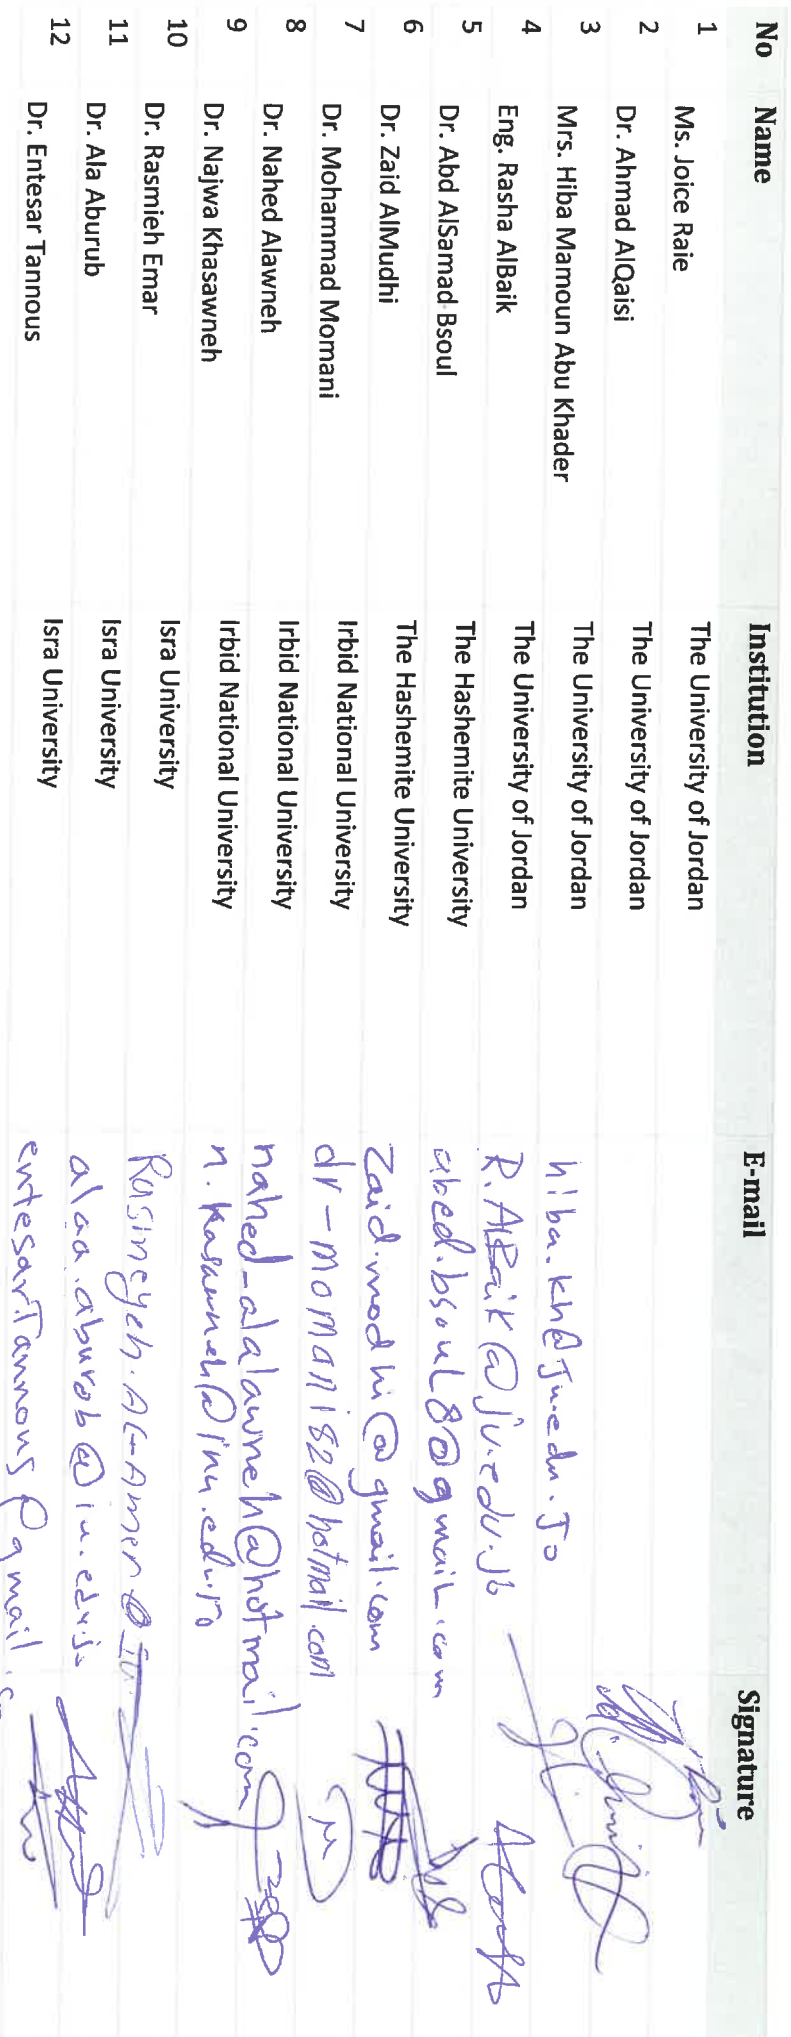 No Name Institution E-mail Signature
1 Ms. Joice Raie The University of Jordan
2 Dr. Ahmad AlQaisi The University of Jordan
3 Mrs. Hiba Mamoun Abu Khader The University of Jordan hiba.kh@Ju.edu.Jo
4 Eng. Rasha AlBaik The University of Jordan R.AlBaik@ju.edu.jo
5 Dr. Abd AlSamad Bsoul The Hashemite University abed.bsouL80@gmaiL.com
6 Dr. Zaid AlMudhi The Hashemite University Zaid.modhi@gmail.com
7 Dr. Mohammad Momani Irbid National University dr-momani82@hotmail.com
8 Dr. Nahed Alawneh Irbid National University nahed_alalawneh@hotmail.com
9 Dr. Najwa Khasawneh Irbid National University n.kasawneh@inu.edu.jo
10 Dr. Rasmieh Emar Isra University
11 Dr. Ala Aburub Isra University alaa.aburob@iu.edu.jo
12 Dr. Entesar Tannous Isra University entesarTannous@gmail.